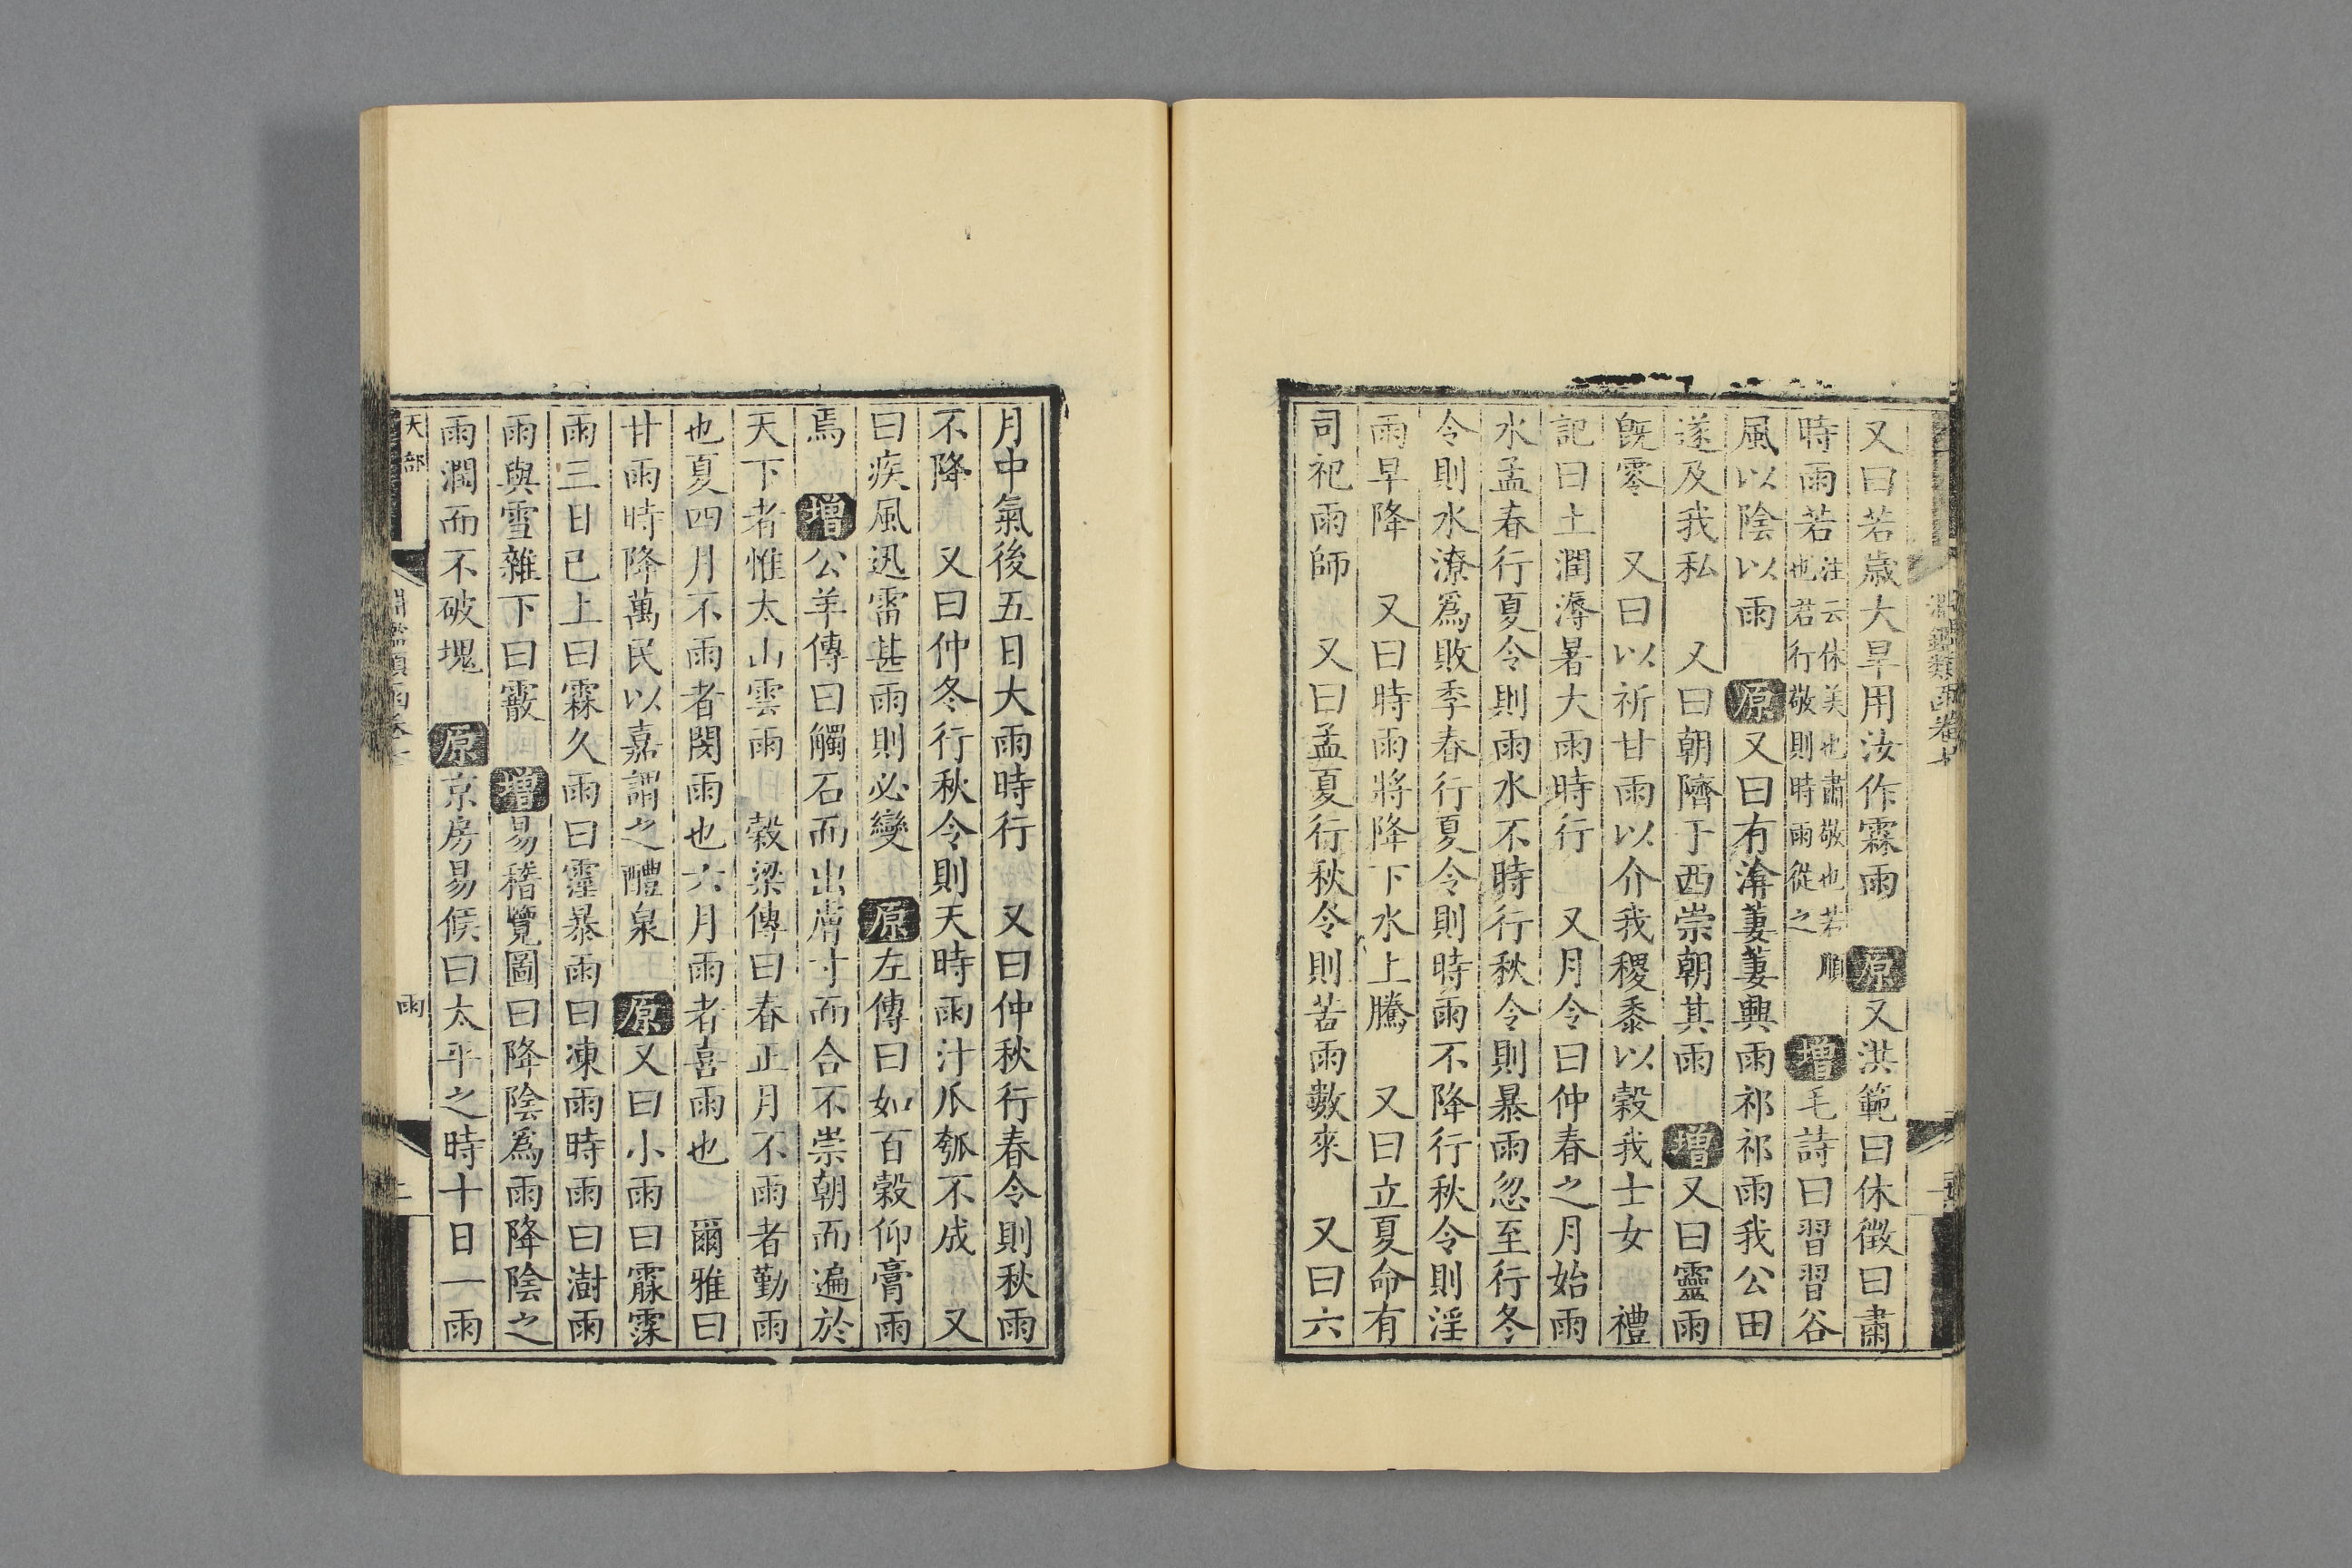 又曰若歲大旱用汝作霖雨 原又洪範曰休徵曰肅
時雨若注云休美也肅敬也若順也君行敬則時雨從之 增毛詩曰習習谷
風以陰以雨 原又曰有渰萋萋興雨祁祁雨我公田
遂及我私 又曰朝隮于西崇朝其雨 增又曰靈雨
旣零 又曰以祈甘雨以介我稷黍以穀我士女 禮
記曰土潤溽暑大雨時行 又月令曰仲春之月始雨
水孟春行夏令則雨水不時行秋令則暴雨忽至行冬
令則水潦爲敗季春行夏令則時雨不降行秋令則淫
雨早降 又曰時雨將降下水上騰 又曰立夏命有
司祀雨師 又曰孟夏行秋令則苦雨數來 又曰六
月中氣後五日大雨時行 又曰仲秋行春令則秋雨
不降 又曰仲冬行秋令則天時雨汁瓜瓠不成 又
曰疾風迅雷甚雨則必變 原左傳曰如百穀仰膏雨
焉 增公羊傳曰觸石而出膚寸而合不崇朝而遍於
天下者惟太山雲雨 穀梁傳曰春正月不雨者勤雨
也夏四月不雨者閔雨也六月雨者喜雨也 爾雅曰
甘雨時降萬民以嘉謂之醴泉 原又曰小雨曰霢霂
雨三日已上曰霖久雨曰霪暴雨曰涷雨時雨曰澍雨
雨與雪雜下曰霰 增易稽覽圖曰降陰爲雨降陰之
雨潤而不破塊 原京房易候曰太平之時十日一雨
天部
雨